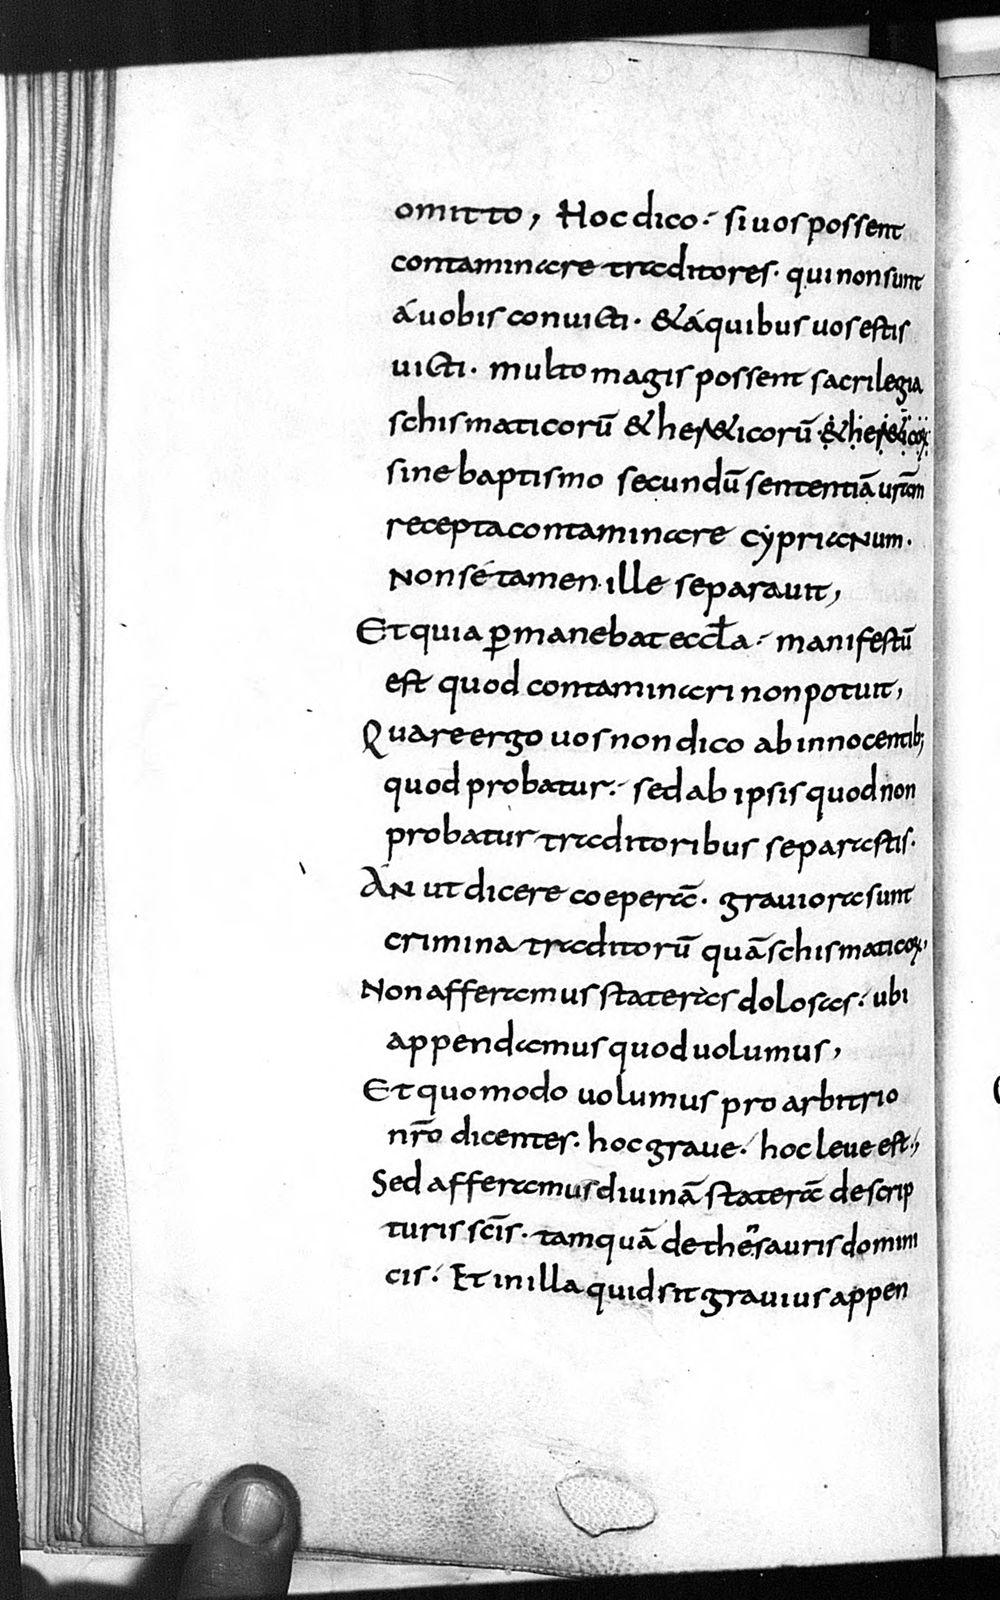 omitto, Hoc dico· si uos possent
contaminare traditores· qui non sunt
á uobis conuicti· & á quibus uos estis
uicti· multo magis possent sacrilegia
schismaticorū & her&icorū
sine baptismo secundū sententiā urām
recepta contaminare cyprianum·
Non sé tamen ille separauit,
Et quia ꝑmanebat eccła· manifestū
est quod contaminari non potuit,
Quare ergo uos non dico ab innocentib;
quod probatur· sed ab ipsis quod non
probatur traditoribus separastis·
AN ut dicere coeperā· grauiora sunt
crimina traditorū quā schismaticoꝝ,
Non afferamus stateras dolosas· ubi
appendamus quod uolumus,
Et quomodo uolumus pro arbitrio
nr̄o dicentes· hoc graue· hoc leue est·,
Sed afferamus diuinā staterā de scrip
turis scīs· tamquā de thesauris domini
cis· Et in illa quid sit grauius appen